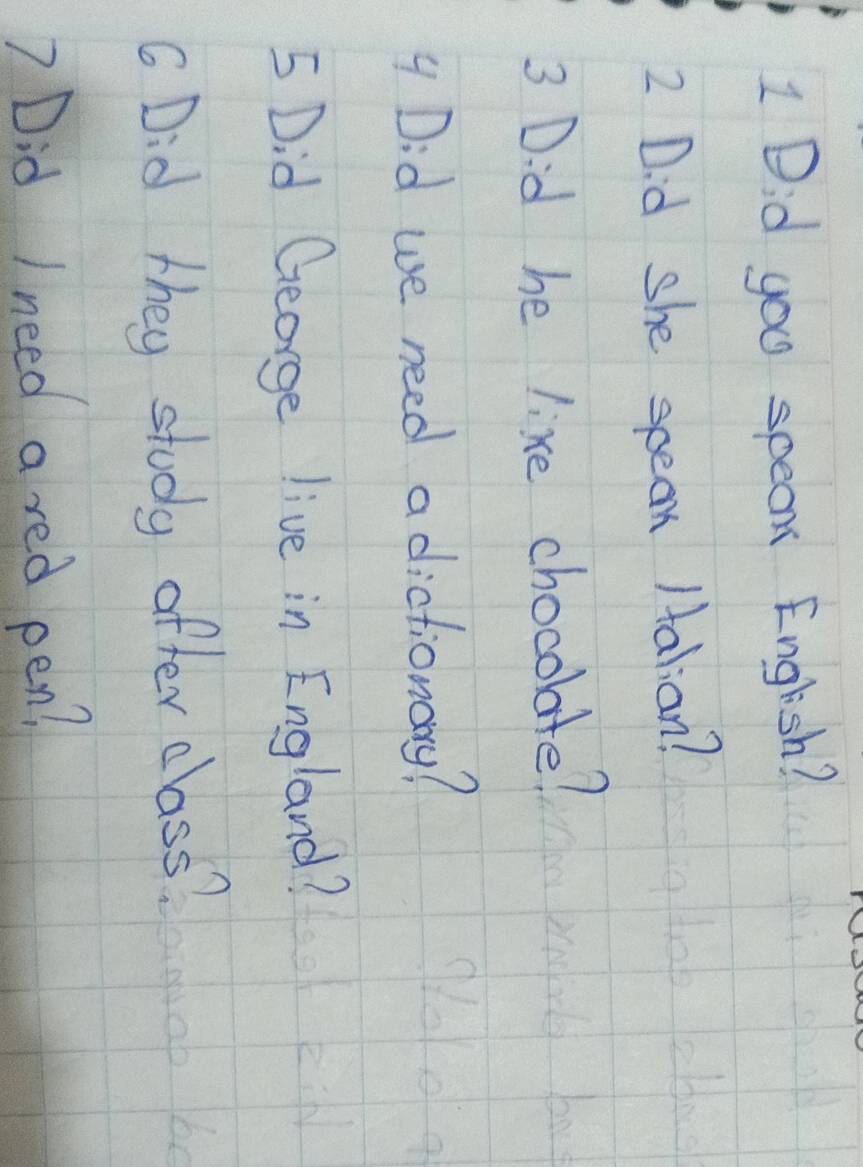 1 Did you speak English?
2 Did she speak Italian?
3 Did he like chocolate?
4 Did we need a dictionary?
5 Did George live in England?
6 Did they study after class?
7 Did I need a red pen?